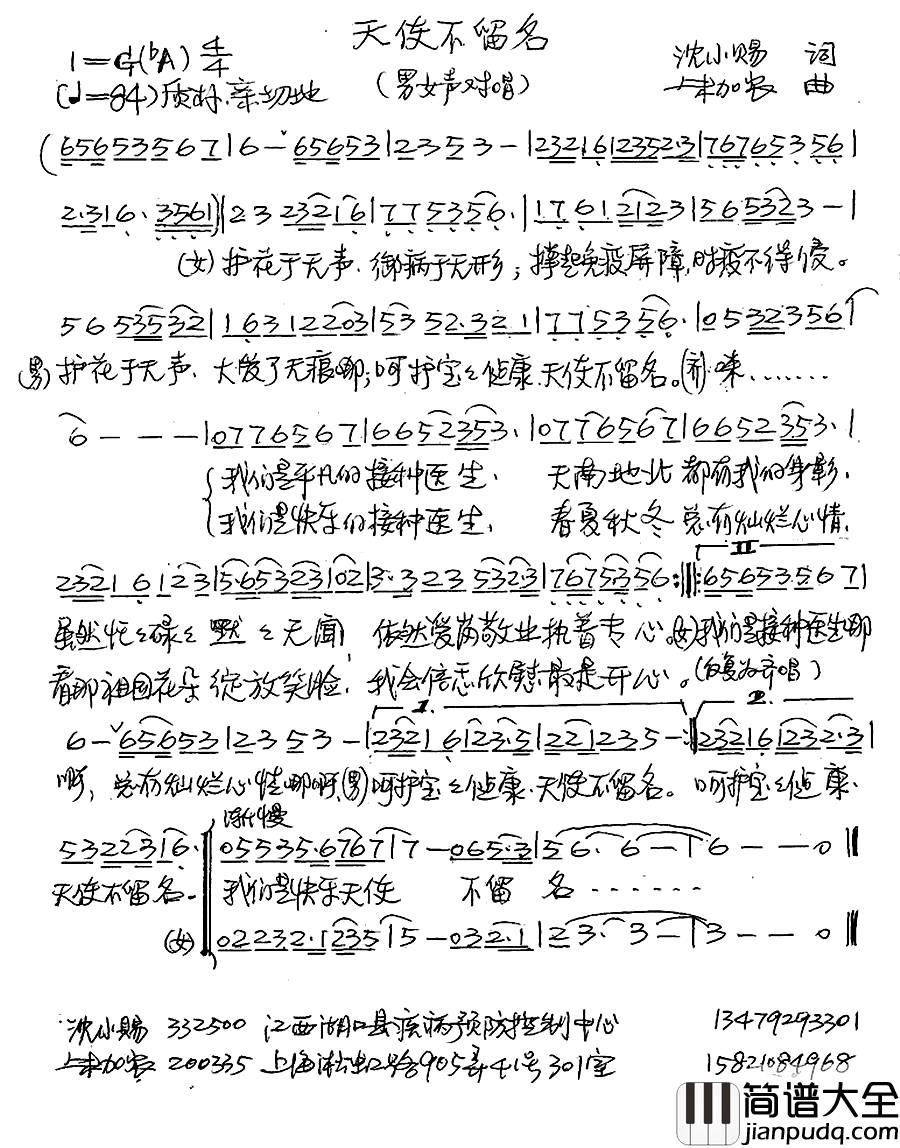 天使不留名
1=G(♭A) 4/4
沈小赐 词
(♩=84) 质朴、亲切地
(男女声对唱)
朱加农 曲
(65653567|6-ˇ65653|2353-|232161235 2·3|7676 5356|
2·316· 3561)|2323216|7753 56·|176 12123|5653 23-|
(女)护花于无声、御病于无形；撑起免疫屏障,时疫不得侵。
56535 32|163122 03|5352·321|7753 56·|0532 356|
(男)护花于无声、大爱了无痕哪；呵护宝々健康、天使不留名。(齐)嗦……
6---|0776567|6652353·|0776567|6652353·|
我们是平凡的接种医生、 天南地北都有我的身影、
我们是快乐的接种医生、 春夏秋冬总有灿烂心情、
II
2321 6 123|5·653 23 02|3·323 5323|7675356:‖:65653567|
虽然忙々碌々默々无闻, 依然爱岗敬业执着专心。(女)我们是接种医生哪
看那祖国花朵绽放笑脸, 我会倍感欣慰最是开心。(反复为齐唱)
1. 2.
6-ˇ65653|2353-|2321 6 123·5|221235-:‖2321 6 1232·3|
啊, 总有灿烂心情哪啊,(男)呵护宝々健康、天使不留名。 呵护宝々健康、
渐慢
5322316·‖05535·6767|7-065·3|56·6-|6--0‖
天使不留名。 我们是快乐天使 不留 名……
(女) 02232·1235|5-032·1|23·3-|3--0‖
沈小赐 332500 江西湖口县疾病预防控制中心 13479293301
朱加农 200335 上海淞虹路905弄41号301室 15821084968
简谱大全
jianpudq.com